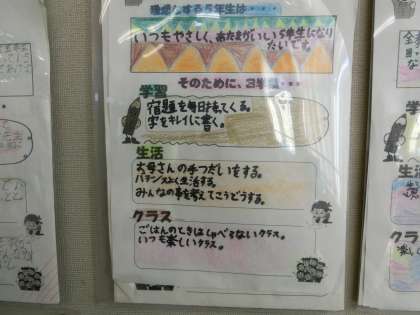 理想とする5年生活・・・
いつもやさしく、あたまがいい5年生になり
たいです。
そのために、3学期・・・
学習
宿題を毎日持てくる。
字をキレイに書く。
生活
お母さんの手つだいをする。
みんなの事を考えてこうどうする。
クラス
ごはんのときはしゃべらないクラス。
いつも楽しいクラス。